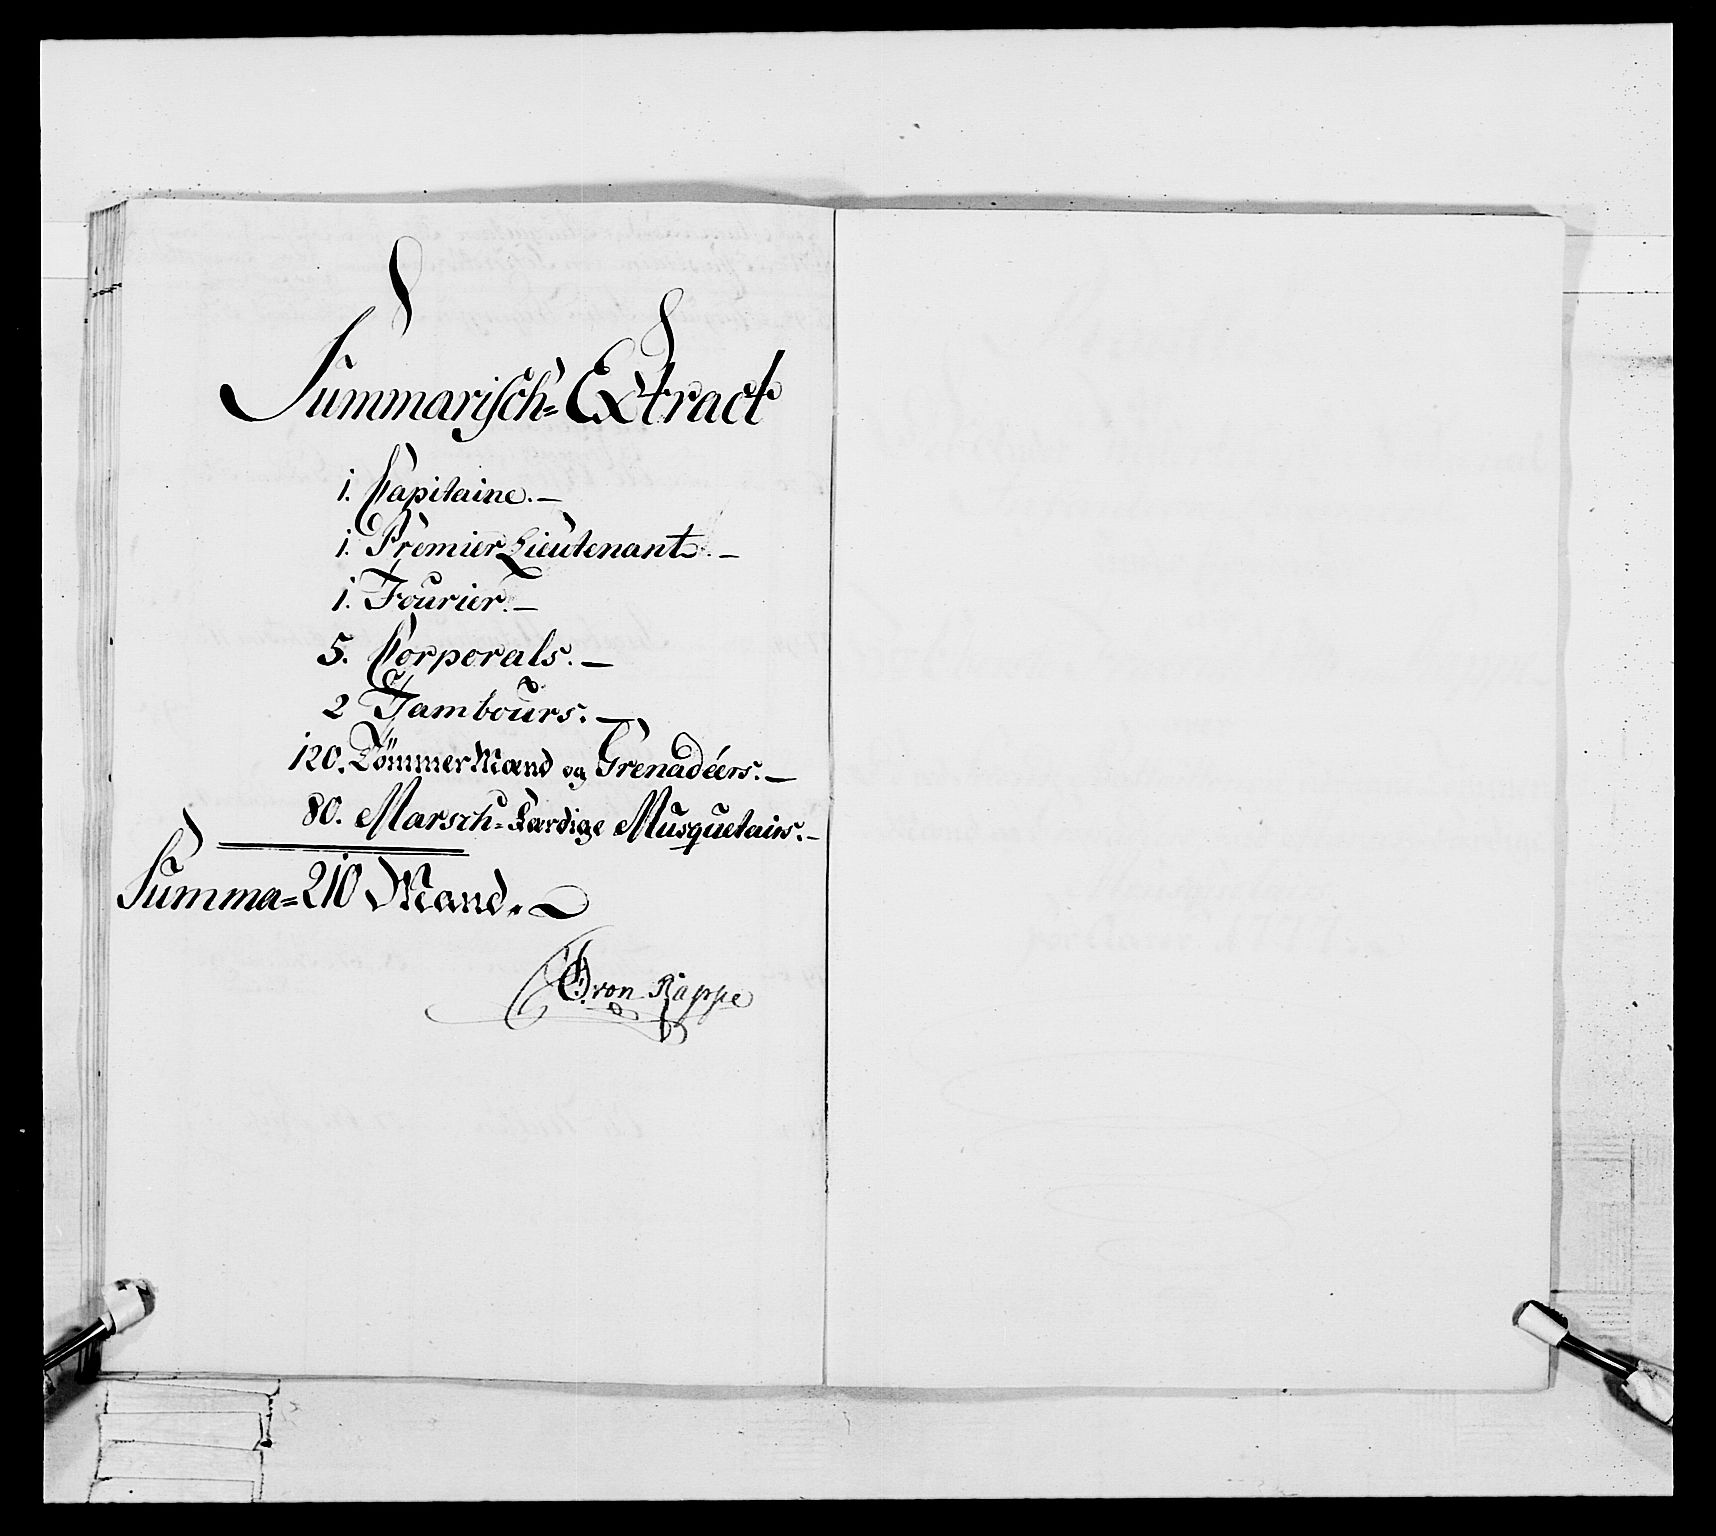 Summarisch= Extract
1. Kapitaine. —
1. Premier Lieutenant. —
1. Fourier. —
5. Korporals. —
2 Tambours. —
120. Tömmer Mænd og Grenadéers. —
80. Marsch=Færdige Musquetairs. —
Summa= 210 Mand.
von Kappe